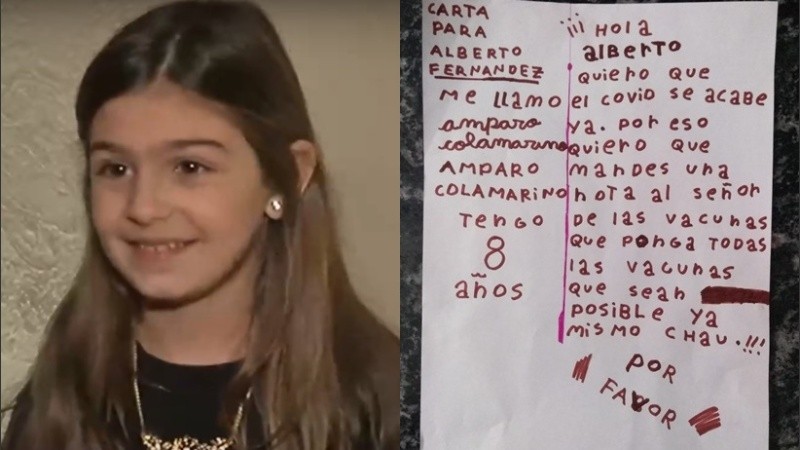 CARTA
PARA
ALBERTO
FERNANDEZ
Me llamo
amparo
colamarino
AMPARO
COLAMARINO
TENGO
8
años
¡¡¡ HOLA
alBERTO
QUIERO QUE
el COVID SE ACABE
YA. POR ESO
QUIERO QUE
MANDES UNA
NOTA al SEÑOR
DE LAS VACUNAS
QUE PONGA TODAS
LAS VACUNAS
QUE SEAN
POSIBLE YA
MISMO CHAU.!!!
POR
FAVOR